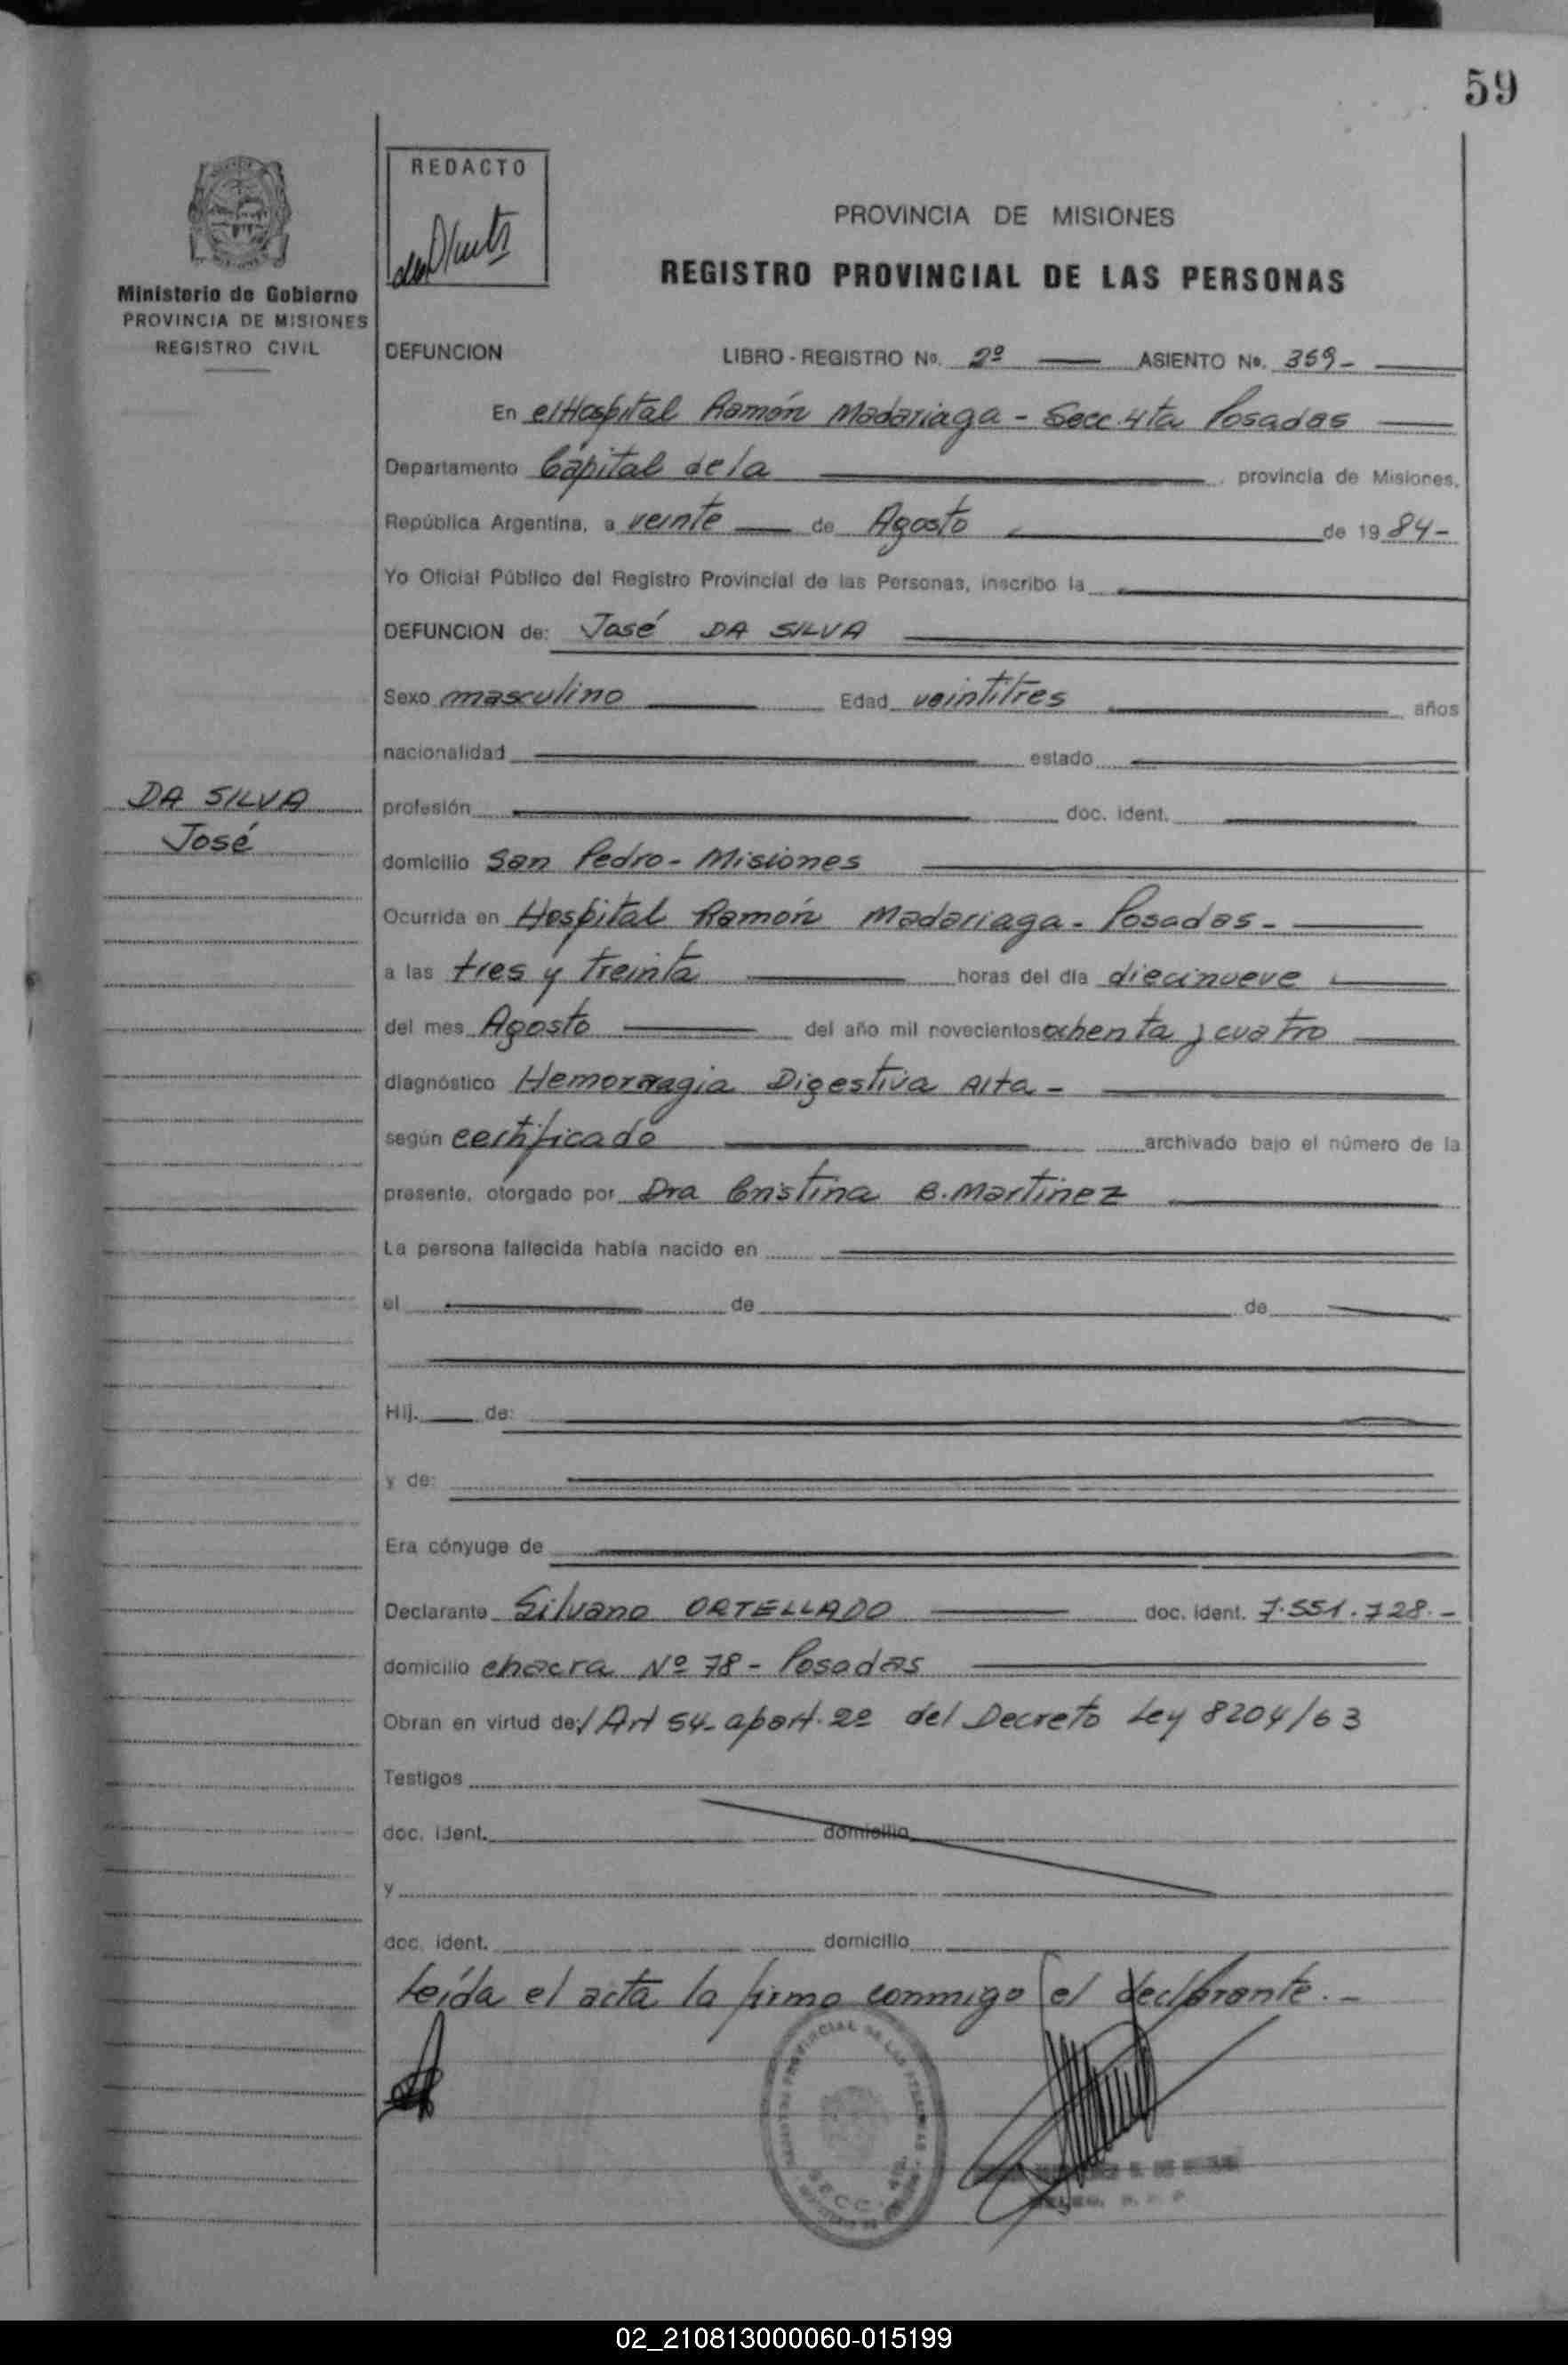 59
REDACTO
PROVINCIA DE MISIONES
REGISTRO PROVINCIAL DE LAS PERSONAS
Ministerio de Gobierno
PROVINCIA DE MISIONES
REGISTRO CIVIL
DEFUNCION LIBRO - REGISTRO No. 2º ASIENTO No. 369-
En el Hospital Ramón Madariaga - Secc. 4ta Posadas
Departamento Capital de la provincia de Misiones,
República Argentina, a veinte de Agosto de 1984-
Yo Oficial Público del Registro Provincial de las Personas, inscribo la
DEFUNCION de: José DA SILVA
Sexo masculino Edad veintitres años
nacionalidad estado
DA SILVA
José
profesión doc. ident.
domicilio San Pedro - Misiones
Ocurrida en Hospital Ramón Madariaga - Posadas -
a las tres y treinta horas del día diecinueve
del mes Agosto del año mil novecientos ochenta y cuatro
diagnóstico Hemorragia Digestiva Alta -
según certificado archivado bajo el número de la
presente, otorgado por Dra Cristina B. Martinez
La persona fallecida había nacido en
el de de
Hij. de:
y de:
Era cónyuge de
Declarante Silvano ORTELLADO doc. ident. 7.551.728.-
domicilio chacra Nº 78 - Posadas
Obran en virtud de:/ Art 54- apart. 2º del Decreto Ley 8204/63
Testigos
doc. ident. domicilio
y
doc. ident. domicilio
Leída el acta la firma conmigo el declarante.-
02_210813000060-015199